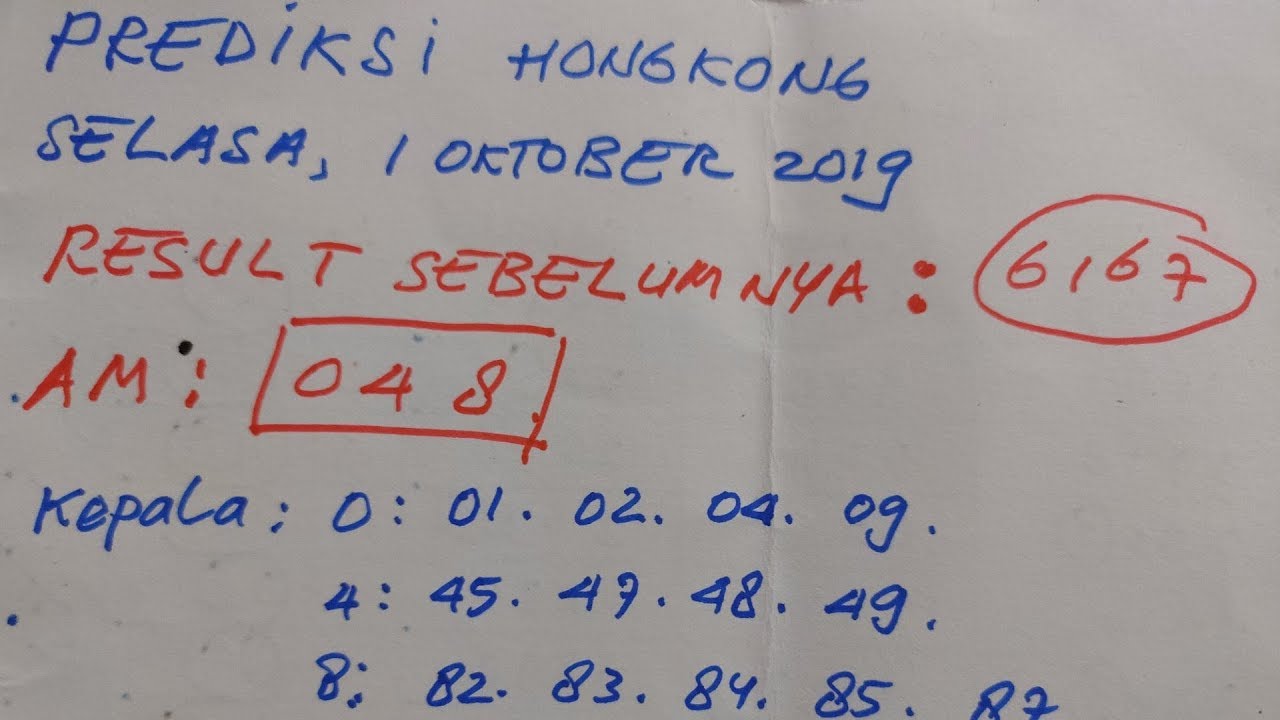 PREDiKSi HONGKONG
SELASA, 1 OKTOBER 2019
RESULT SEBELUMNYA : 6167
AM : 048
Kepala : 0 : 01. 02. 04. 09.
4 : 45. 47. 48. 49.
8 : 82. 83. 84. 85. 87